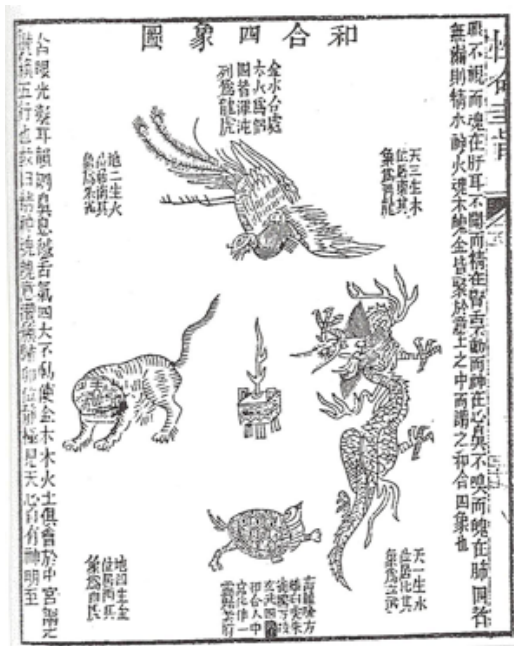 性命圭旨
和合四象圖
眼不視而魂在肝耳不聞而精在腎舌不動而神在心鼻不嗅而魄在肺四者
無漏則精水神火魂木魄金皆聚於意土之中而謂之和合四象也
天三生木
位居東其
象為青龍
金水合處
木火為侶
四者渾沌
列為龍虎
地二生火
位居南其
象為朱雀
天一生水
位居北其
象為玄武
地四生金
位居西其
象為白虎
含眼光凝耳韻調鼻息緘舌氣四大不動使金木水火土俱會於中宮謂之
攢簇五行也故曰精神魂魄意攢簇歸坤位靜極見天心自有神明至